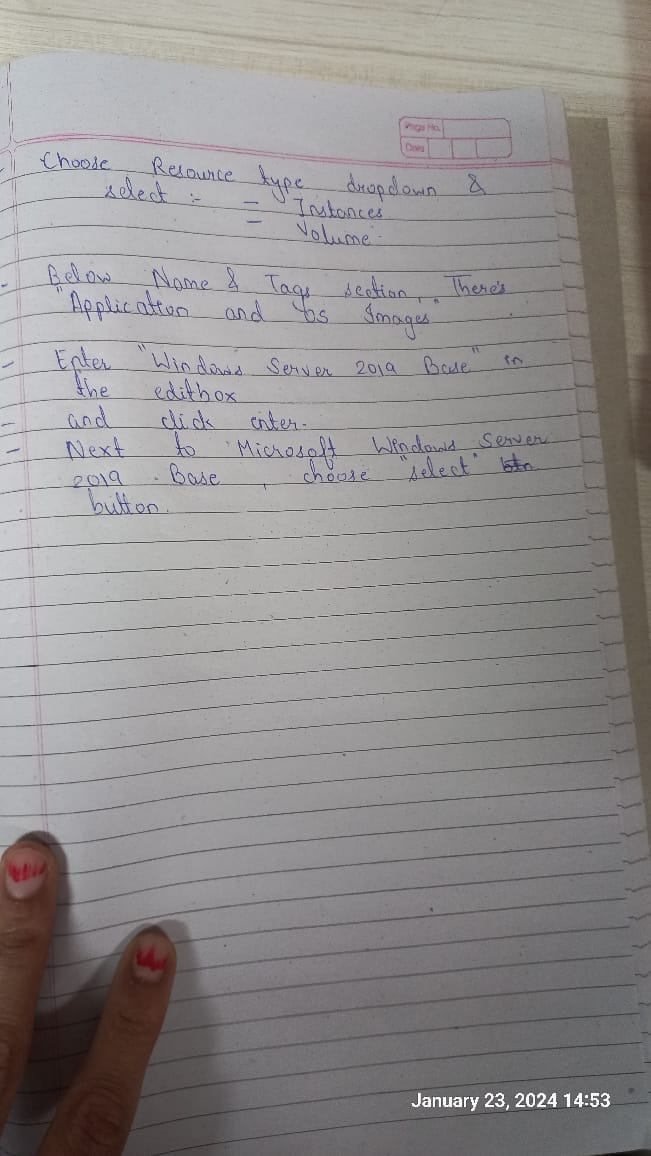 Page No.
Date
- Choose Resource type dropdown &
select :- = Instances
= Volume.
- Below Name & Tags section, There's
"Application and Os Images"
- Enter "Windows Server 2019 Base" in
the editbox
- and click enter.
- Next to "Microsoft Windows Server
2019 Base , choose "select"
button.
January 23, 2024 14:53